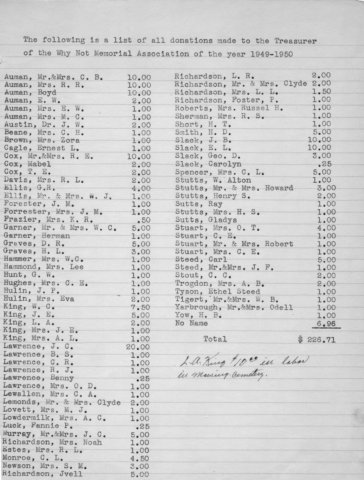 The following is a list of all donations made to the Treasurer
of the Why Not Memorial Association of the year 1949-1950
Auman, Mr.&Mrs. C. B. 10.00
Auman, Mrs. R. R. 10.00
Auman, Boyd 10.00
Auman, E. W. 2.00
Auman, Mrs. E. W. 1.00
Auman, Mrs. M. C. 1.00
Austin, Dr. J. W. 2.00
Beane, Mrs. C. H. 1.00
Brown, Mrs. Zora 1.00
Cagle, Ernest L. 1.00
Cox, Mr.&Mrs. R. E. 10.00
Cox, Mabel 2.00
Cox, T. E. 2.00
Davis, Mrs. R. L. 2.00
Ellis, G.R. 4.00
Ellis, Mr. & Mrs. W. J. 1.00
Forester, J. M. 1.00
Forrester, Mrs. J. M. 1.00
Frazier, Mrs. K. .50
Garner, Mr. & Mrs. W. C. 5.00
Garner, Herman 1.00
Graves, D. R. 5.00
Graves, H. L. 3.00
Hammer, Mrs. W.C. 1.00
Hammond, Mrs. Lee 1.00
Hunt, G. W. 1.00
Hughes, Mrs. C. E. 1.00
Hulin, J. F. 1.00
Hulin, Mrs. Eva 2.00
King, W. C. 7.50
King, J. E. 5.00
King, L. A. 2.00
King, Mrs. J. E. 1.00
King, Mrs. A. L. 1.00
Lawrence, J. C. 20.00
Lawrence, B. S. 1.00
Lawrence, C. R. 1.00
Lawrence, R. J. 1.00
Lawrence, Benny .25
Lawrence, Mrs. O. D. 1.00
Lewallen, Mrs. C. A. 1.00
Lemonds, Mr. & Mrs. Clyde 2.00
Lovett, Mrs. M. J. 1.00
Lowdermilk, Mrs. A. C. 1.00
Luck, Fannie F. .25
Murray, Mr.&Mrs. J. C. 5.00
Richardson, Mrs. Noah 1.00
Estes, Mrs. R. L. 1.00
Monroe, C. L. 4.50
Newson, Mrs. S. M. 3.00
Richardson, Jvell 5.00
Richardson, L. R. 2.00
Richardson, Mr. & Mrs. Clyde 2.00
Richardson, Mrs. L. L. 1.50
Richardson, Foster, F. 1.00
Roberts, Mrs. Russel H. 1.00
Sherman, Mrs. R. S. 1.00
Slack, H. T. 1.00
Smith, H. D. 5.00
Slack, J. B. 10.00
Slack, S. L. 10.00
Slack, Geo. D. 3.00
Slack, Carolyn .25
Spencer, Mrs. C. L. 5.00
Stutts, W. Alton 1.00
Stutts, Mr. & Mrs. Howard 3.00
Stutts, Henry S. 2.00
Sutts, Ray 1.00
Stutts, Mrs. H. S. 1.00
Stutts, Gladys 1.00
Stuart, Mrs. O. T. 4.00
Stuart, C. E. 1.00
Stuart, Mr. & Mrs. Robert 1.00
Stuart, Mrs. C. E. 1.00
Steed, Carl 5.00
Steed, Mr.&Mrs. J. F. 1.00
Stout, C. C. 2.00
Trogdon, Mrs. A. B. 2.00
Tyson, Ethel Steed 1.00
Tigert, Mr.&Mrs. W. B. 1.00
Yarbrough, Mr.&Mrs. Odell 1.00
Yow, H. B. 1.00
No Name 6.96
Total $ 226.71
L.A. King $10.00 in labor
in mowing cemetery.